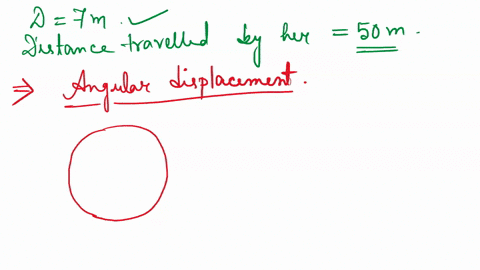 D = 7 m. ✓
Distance travelled by her = 50 m.
⇒ Angular displacement.